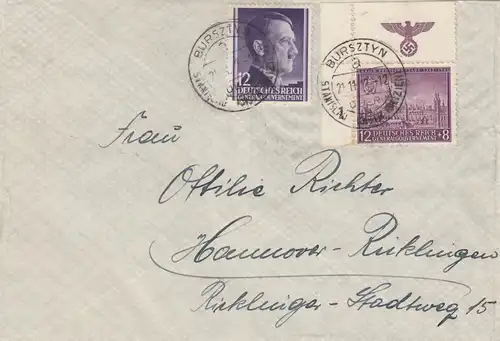 BURSZTYN
BURSZTYN
12
DEUTSCHES REICH
GENERALGOUVERNEMENT
12 DEUTSCHES REICH + 8
GENERALGOUVERNEMENT
Frau
Ottilie Richter
Hannover-Ricklingen
Ricklinger-Stadtweg 15